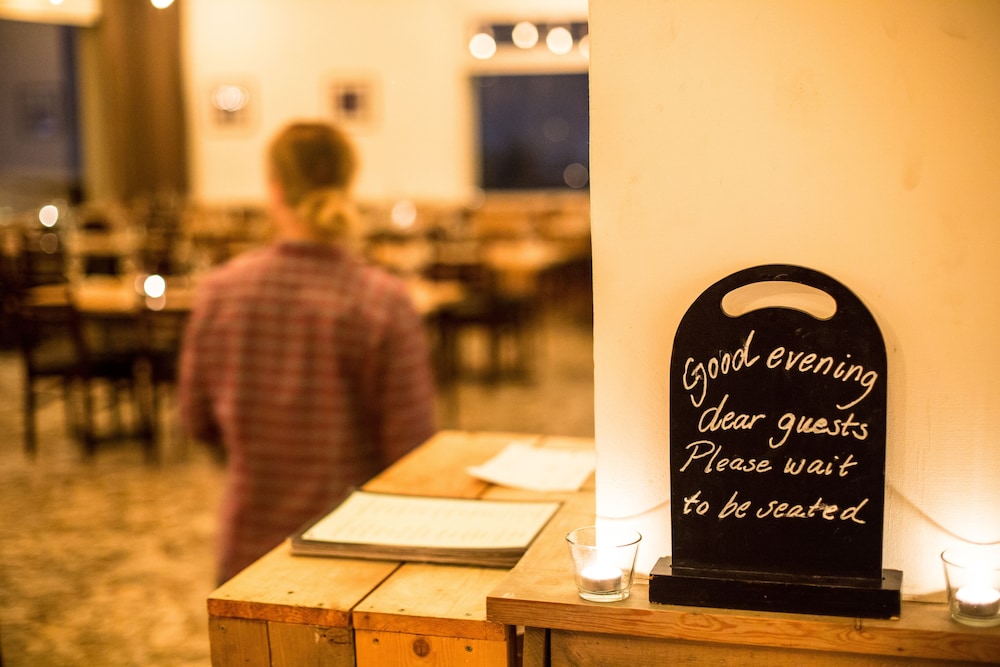 Good evening
dear guests
Please wait
to be seated